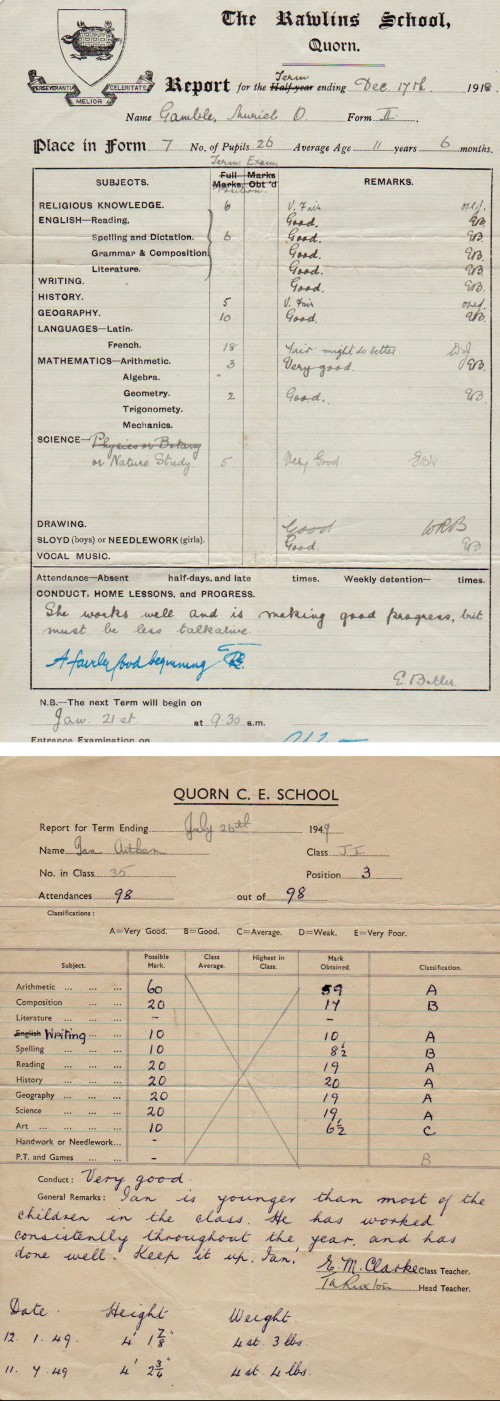 The Rawlins School,
Quorn.
PERSEVERANTIA CELERITATE
MELIOR
Report for the Half-year Term ending Dec. 17th. 1918
Name Gamble, Muriel O Form II.
Place in Form 7 No. of Pupils 26 Average Age 11 years 6 months.
Term Exam.
SUBJECTS. Full Marks. Marks Obt'd REMARKS.
Position.
RELIGIOUS KNOWLEDGE. 6 V. Fair
ENGLISH—Reading, Good. EB.
Spelling and Dictation. 6 Good. EB.
Grammar & Composition. Good. EB.
Literature. Good. EB.
WRITING. Good. EB.
HISTORY. 5 V. Fair
GEOGRAPHY. 10 Good. EB.
LANGUAGES—Latin.
French. 18 Fair might do better
MATHEMATICS—Arithmetic. 3 Very good. EB.
Algebra.
Geometry. 2 Good. EB.
Trigonometry.
Mechanics.
SCIENCE—Physics or Botany
or Nature Study 5 Very Good
DRAWING. Good WRB
SLOYD (boys) or NEEDLEWORK (girls). Good. EB
VOCAL MUSIC.
Attendance—Absent half-days, and late times. Weekly detention— times.
CONDUCT, HOME LESSONS, and PROGRESS.
She works well and is making good progress, but
must be less talkative.
A fairly good beginning
E. Butler
N.B.—The next Term will begin on
Jan. 21st. at 9.30 a.m.
Entrance Examination on
QUORN C. E. SCHOOL
Report for Term Ending July 26th 1949
Name Ian Aitken Class J I
No. in Class 35 Position 3
Attendances 98 out of 98
Classifications :
A=Very Good. B=Good. C=Average. D=Weak. E=Very Poor.
Subject. Possible Mark. Class Average. Highest in Class. Mark Obtained. Classification.
Arithmetic ... ... ... 60 59 A
Composition ... ... 20 17 B
Literature ... ... ... - -
English Writing ... 10 10 A
Spelling ... ... ... 10 8½ B
Reading ... ... ... 20 19 A
History ... ... ... 20 20 A
Geography ... ... ... 20 19 A
Science ... ... ... 20 19 A
Art ... ... ... ... 10 6½ C
Handwork or Needlework... -
P.T. and Games ... ... - B
Conduct : Very good.
General Remarks : Ian is younger than most of the
children in the class. He has worked
consistently throughout the year, and has
done well. Keep it up, Ian.
E. M. Clarke Class Teacher.
Head Teacher.
Date. Height Weight.
12. 1. 49. 4' 1⅞" 4 st. 3 lbs.
11. 7. 49 4' 2¾" 4 st. 4 lbs.